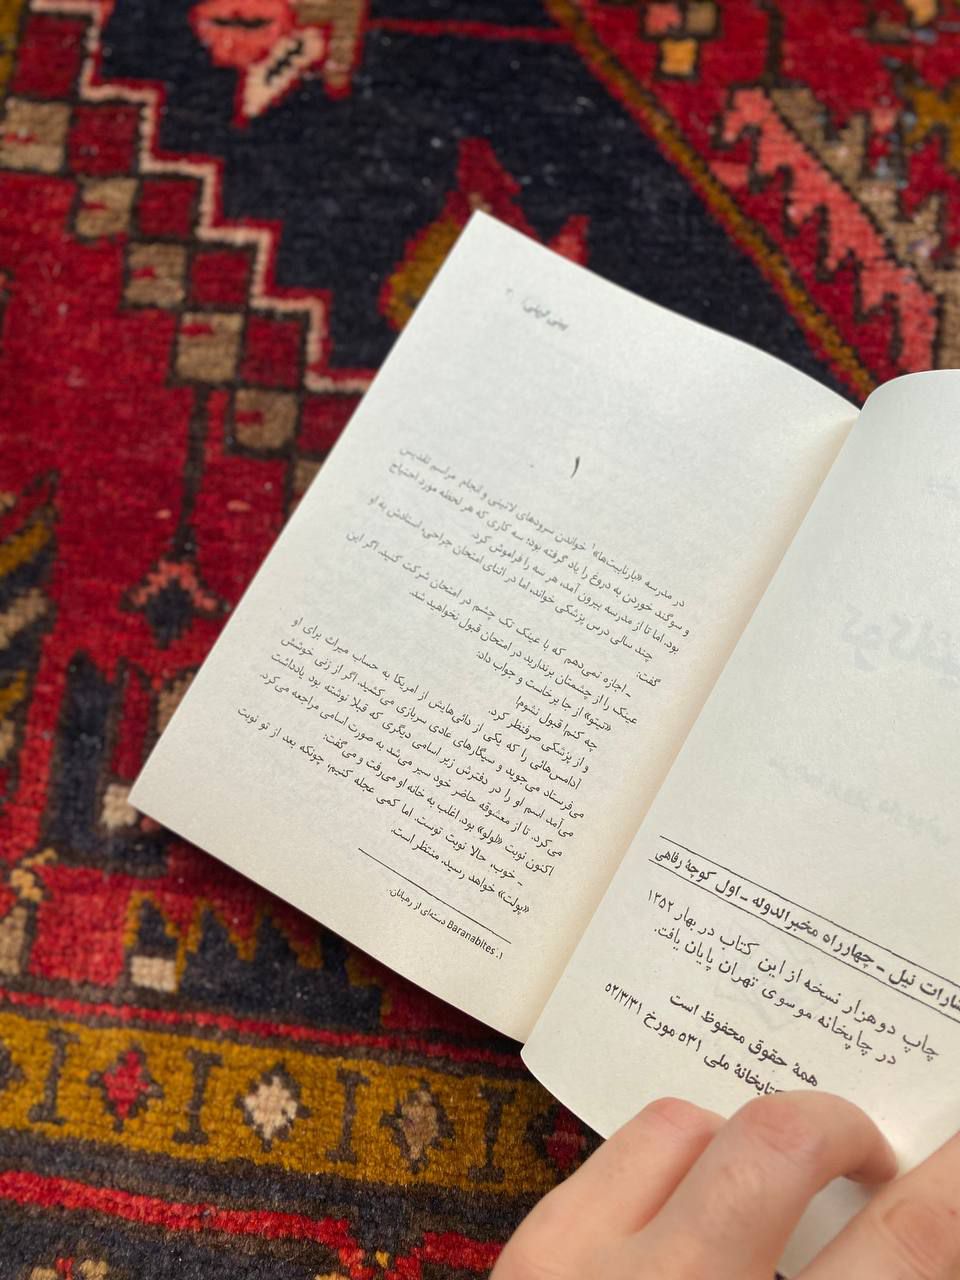 نشارات نیل - چهارراه مخبرالدوله - اول کوچهٔ رفاهی
چاپ دوهزار نسخه از این کتاب در بهار ۱۳۵۲
در چاپخانه موسوی تهران پایان یافت.
همهٔ حقوق محفوظ است
کتابخانهٔ ملی ۵۳۱ مورخ ۵۲/۳/۳۱
۱
در مدرسه «بارنابیت‌ها»۱ خواندن سرودهای لاتینی و انجام مراسم تقدیس
و سوگند خوردن به دروغ را یاد گرفته بود: سه کاری که هر لحظه مورد احتیاج
بود. اما تا از مدرسه بیرون آمد، هر سه را فراموش کرد.
چند سالی درس پزشکی خواند، اما در اثنای امتحان جراحی، استادش به او
گفت:
- اجازه نمی‌دهم که با عینک تک چشم در امتحان شرکت کنید. اگر این
عینک را از چشمتان برندارید در امتحان قبول نخواهید شد.
«تیتو» از جا برخاست و جواب داد:
چه کنم! قبول نشوم!
و از پزشکی صرفنظر کرد.
ادامس‌هائی را که یکی از دائی‌هایش از امریکا به حساب میراث برای او
می‌فرستاد می‌جوید و سیگارهای عادی سربازی می‌کشید. اگر از زنی خوشش
می‌آمد اسم او را در دفترش زیر اسامی دیگری که قبلا نوشته بود یادداشت
می‌کرد. تا از معشوقه حاضر خود سیر می‌شد به صورت اسامی مراجعه می‌کرد.
اکنون نوبت «لولو» بود. اغلب به خانه او می‌رفت و می‌گفت:
- خوب، حالا نوبت توست. اما کمی عجله کنیم، چونکه بعد از تو نوبت
«پولت» خواهد رسید. منتظر است.
۱. Baranabites دسته‌ای از رهبانان.